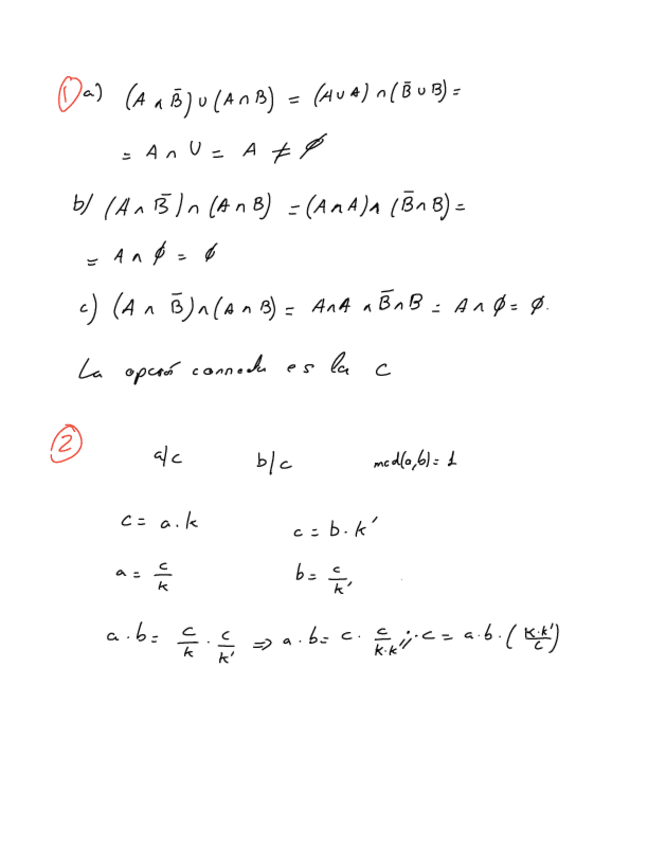 ① a) (A ∩ B̄) ∪ (A ∩ B) = (A ∪ A) ∩ (B̄ ∪ B) =
= A ∩ U = A ≠ ∅
b) (A ∩ B̄) ∩ (A ∩ B) = (A ∩ A) ∩ (B̄ ∩ B) =
= A ∩ ∅ = ∅
c) (A ∩ B̄) ∩ (A ∩ B) = A ∩ A ∩ B̄ ∩ B = A ∩ ∅ = ∅.
La opción correcta es la c
② a/c b/c mcd(a,b) = 1
c = a.k c = b.k'
a = c/k b = c/k'
a.b = c/k . c/k' ⇒ a.b = c. c/k.k' ;; c = a.b.(k.k'/c)